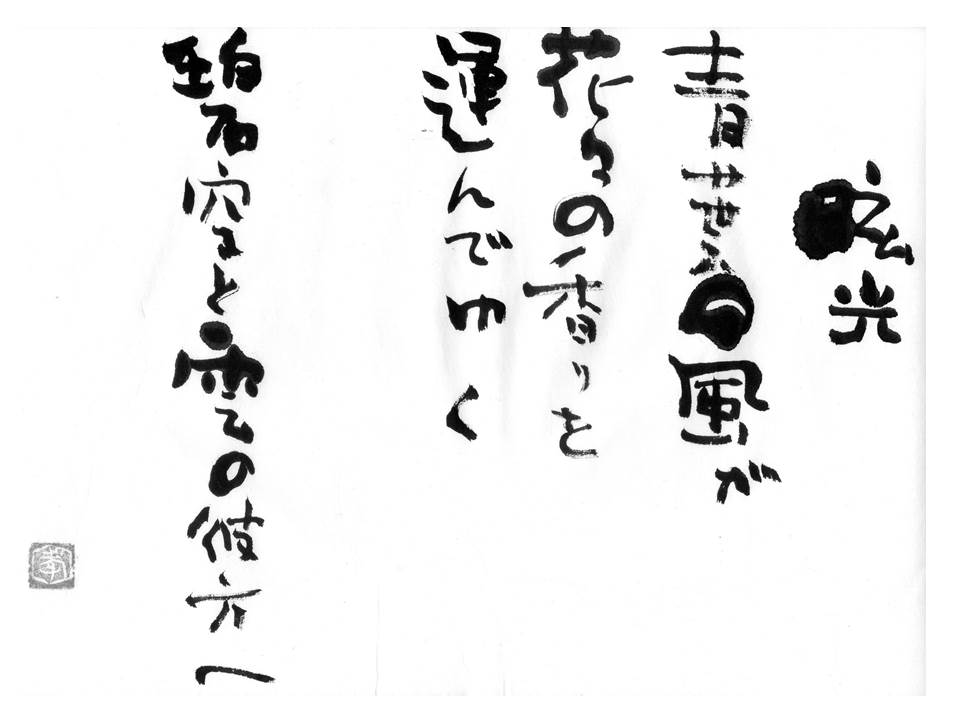 眩光
青葉の風が
花々の香りを
運んでゆく
碧空と雲の彼方へ